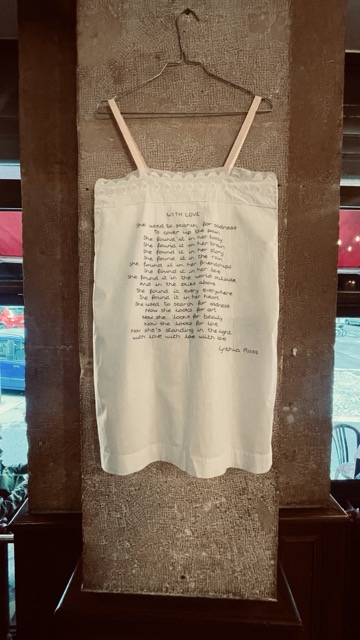 WITH LOVE
She used to search for sadness
To cover up the pain
She found it in her body
She found it in her brain
She found it in her story
She found it in the rain
She found it in her friendships
She found it in her love
She found it in the world outside
And in the skies above
She found it every everywhere
She found it in her heart
She used to search for sadness
Now she looks for art
Now she looks for beauty
Now she looks for love
Now she's standing in the light
With love with love with love
Cynthia Ross